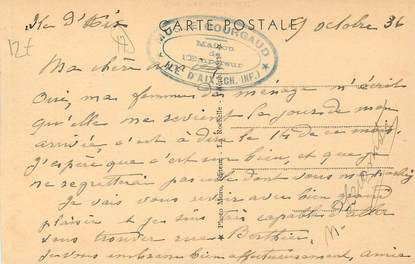 CARTE POSTALE
Ile d'Aix 9 octobre 36
GOURGAUD
Maison
de
l'Empereur
ILE D'AIX (CH. INF.)
Ma chère
Oui, ma femme de ménage m'écrit
qu'elle me revient le jour de mon
arrivée, c'est à dire le 14 de ce mois.
J'espère que c'est bien, et que je
ne regretterai pas celle dont vous
Je vais vous revoir avec bien grand
plaisir et je suis très capable d'aller
vous trouver rue Berthier.
Je vous embrasse bien affectueusement,
Photo Marc, Éditeur - La Rochelle